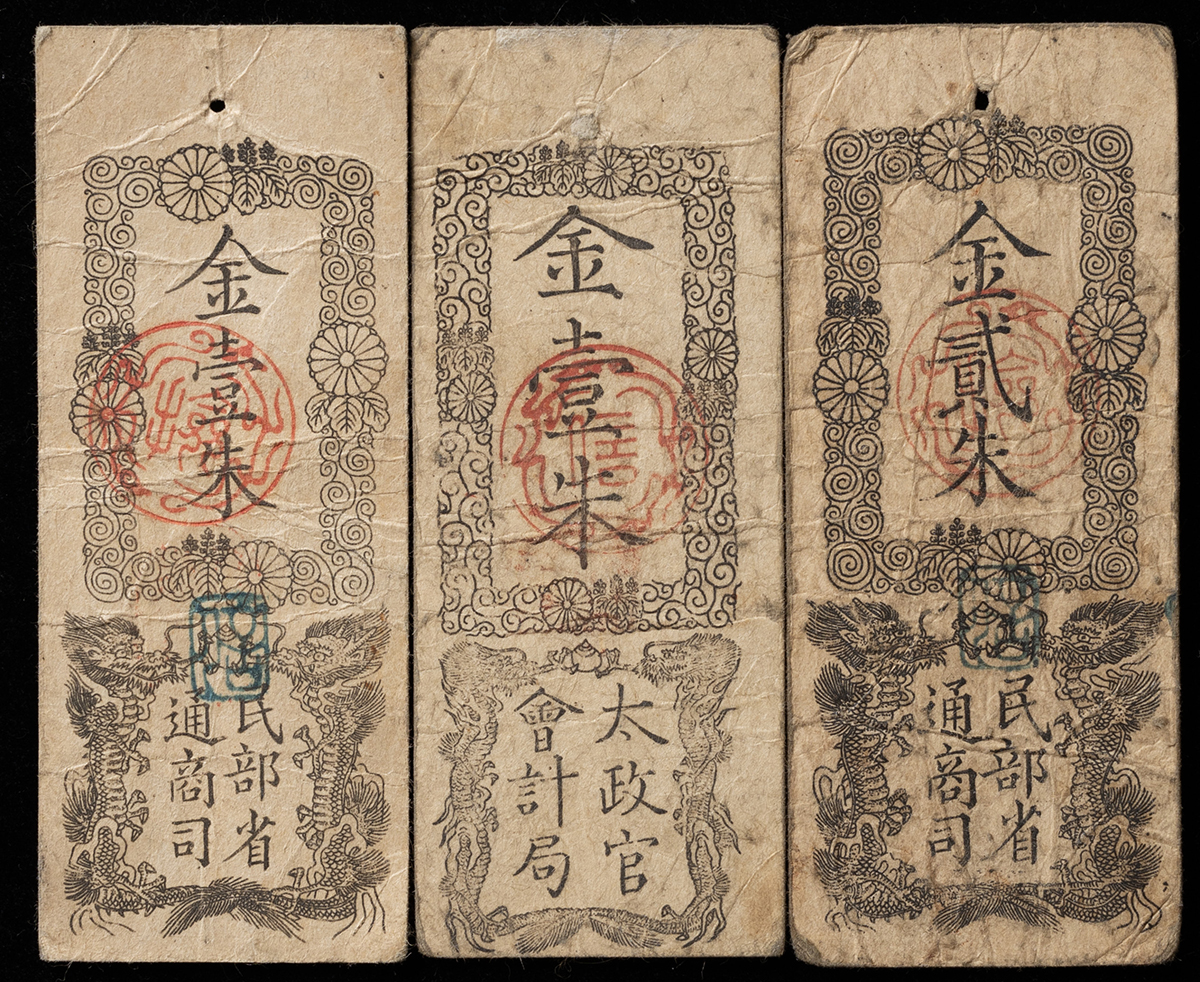 金壹朱
民部省
通商司
金壹朱
太政官
會計局
金貳朱
民部省
通商司